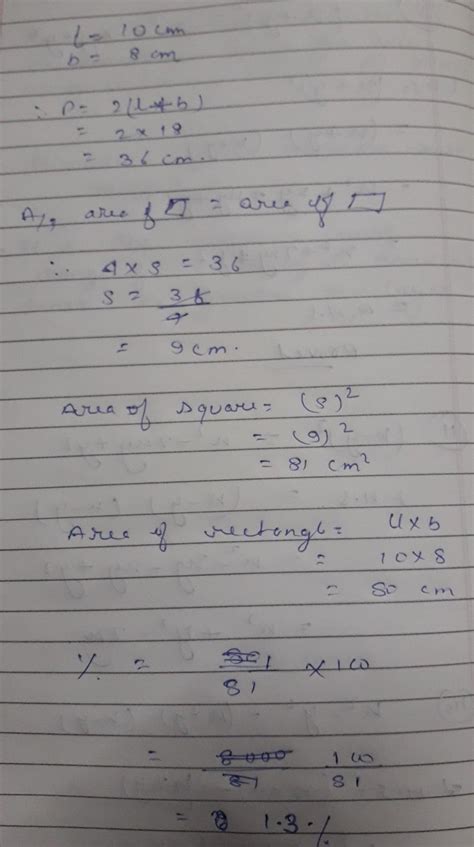 l = 10 cm
b = 8 cm
∴ P = 2(l+b)
= 2 × 18
= 36 cm.
A/, area of ▱ = area of ▭
∴ 4 × s = 36
s = 36/4
= 9 cm.
Area of square = (s)²
= (9)²
= 81 cm²
Area of rectangle = l × b
= 10 × 8
= 80 cm
% = 1/81 × 100
= 100/81
= 1.3 %